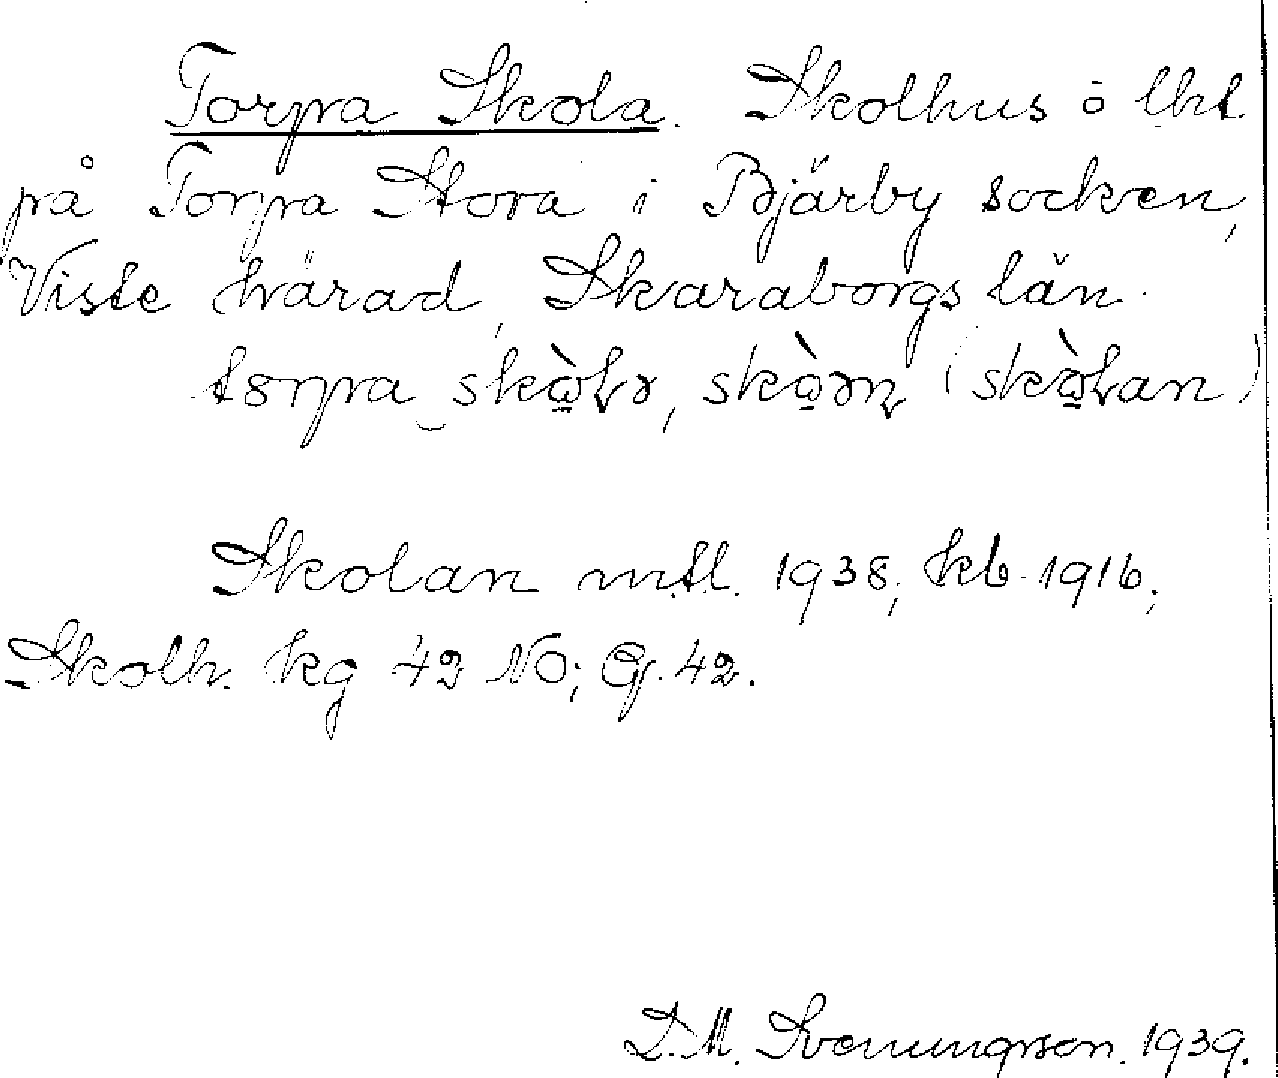 Torpa Skola. Skolhus ö lht
på Torpa Stora i Bjärby socken,
Viste härad, Skaraborgs län.
(skòlan)
Skolan mtl. 1938; kb. 1916;
Skolh. kg 42 NO; GJ. 42.
D. M. Svenungsson. 1939.